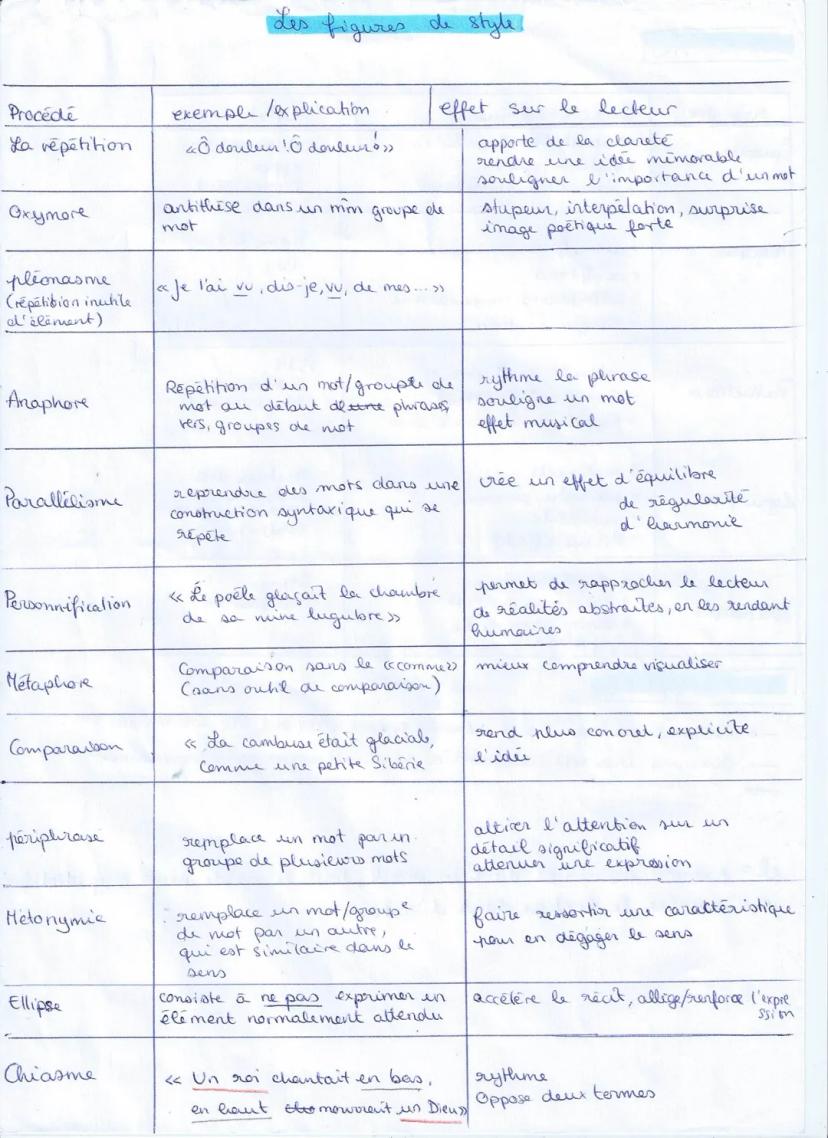 Les figures de style
Procédé
exemple/explication
effet sur le lecteur
La répétition
«Ô douleur! Ô douleur!»
apporte de la clareté
rendre une idée mémorable
souligner l'importance d'un mot
Oxymore
antithèse dans un mm groupe de
mot
stupeur, interpélation, surprise
image poétique forte
pléonasme
(répétition inutile
d'élément)
«Je l'ai vu, dis-je, vu, de mes...»
Anaphore
Répétition d'un mot/groupe de
mot au début de phrases,
vers, groupes de mot
rythme la phrase
souligne un mot
effet musical
Parallélisme
reprendre des mots dans une
construction syntaxique qui se
répète
crée un effet d'équilibre
de régularité
d'harmonie
Personnification
«Le poêle glaçait la chambre
de sa mine lugubre»
permet de rapprocher le lecteur
de réalités abstraites, en les rendant
humaines
Métaphore
Comparaison sans le «comme»
(sans outil de comparaison)
mieux comprendre visualiser
Comparaison
« La cambuse était glacial,
comme une petite Sibérie
rend plus concret, explicite
l'idée
périphrase
remplace un mot par un
groupe de plusieurs mots
attirer l'attention sur un
détail significatif
attenuer une expression
Métonymie
remplace un mot/groupe
de mot par un autre,
qui est similaire dans le
sens
faire ressortir une caractéristique
pour en dégager le sens
Ellipse
consiste à ne pas exprimer un
élément normalement attendu
accélère le récit, allège/renforce l'expre
ssion
Chiasme
« Un roi chantait en bas,
en haut mourait un Dieu»
rythme
Oppose deux termes